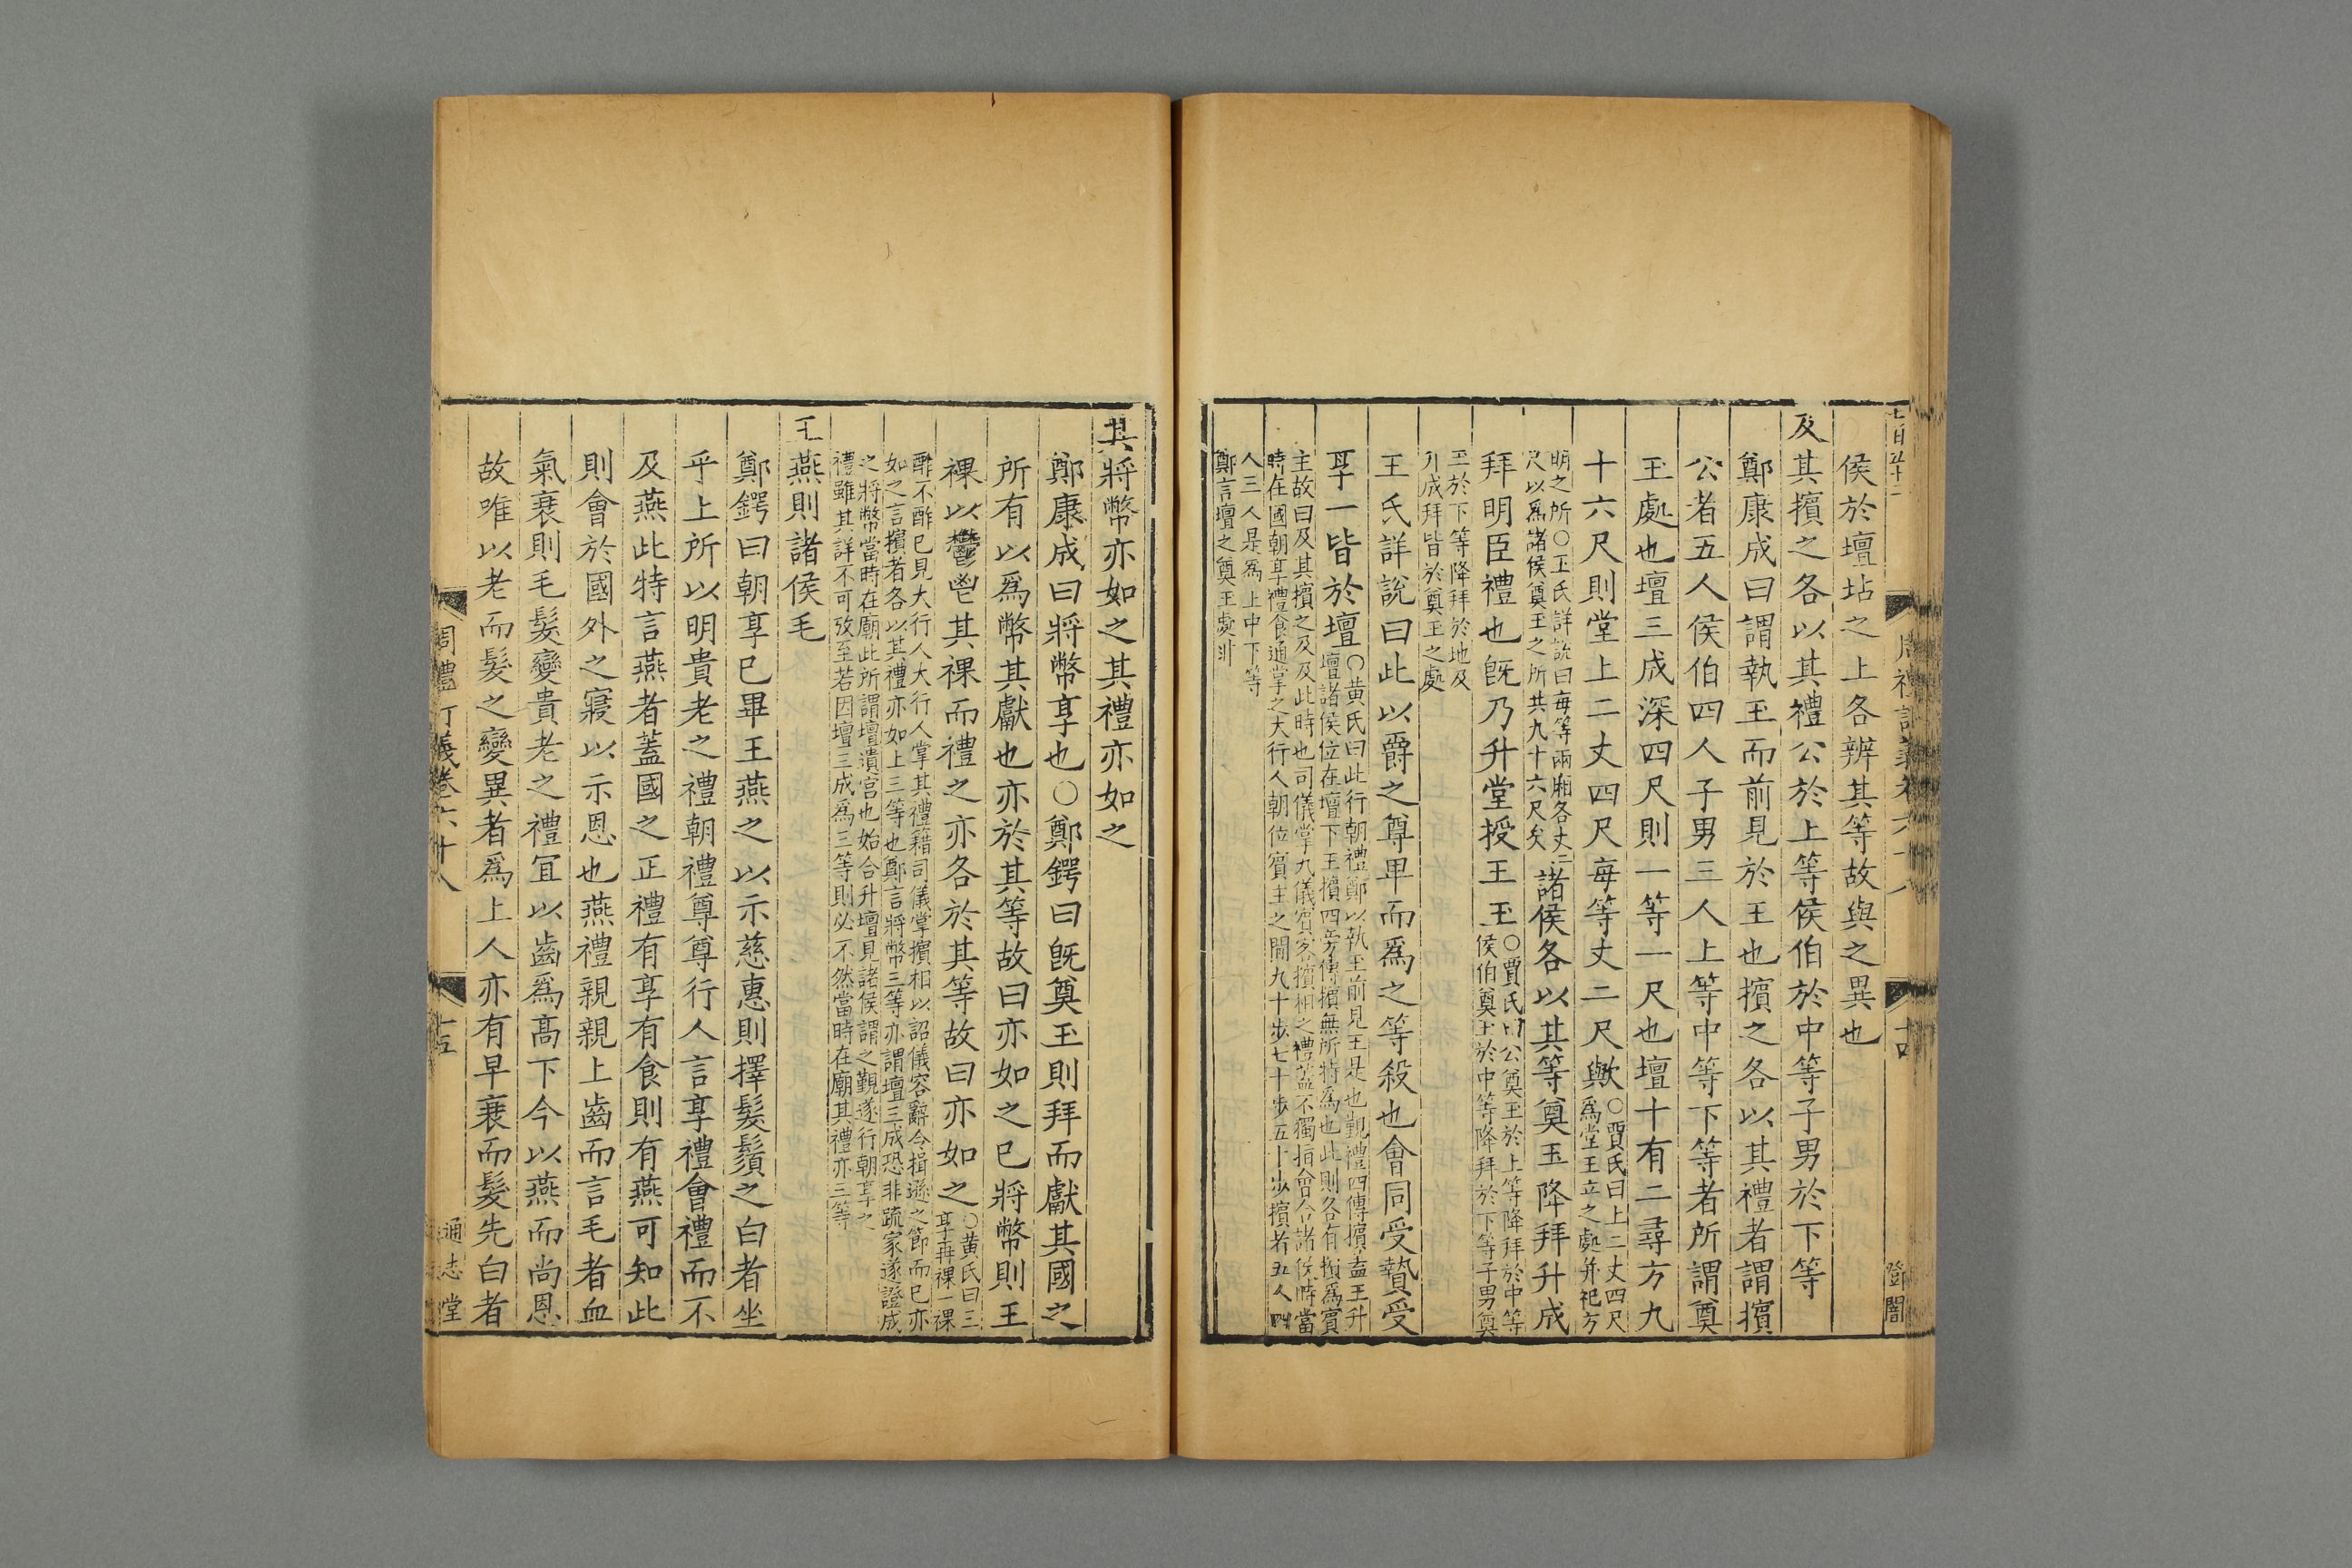 侯於壇坫之上各辨其等故與之異也
及其擯之各以其禮公於上等侯伯於中等子男於下等
鄭康成曰謂執玉而前見於王也擯之各以其禮者謂擯
公者五人侯伯四人子男三人上等中等下等者所謂奠
玉處也壇三成深四尺則一等一尺也壇十有二尋方九
十六尺則堂上二丈四尺每等丈二尺歟○賈氏曰上二丈四尺
為堂王立之處幷祀方
明之所○王氏詳說曰每等兩廂各丈二
尺以為諸侯奠玉之所共九十六尺矣
諸侯各以其等奠玉降拜升成
拜明臣禮也旣乃升堂授王玉○賈氏曰公奠玉於上等降拜於中等
侯伯奠玉於中等降拜於下等子男奠
玉於下等降拜於地及
升成拜皆於奠玉之處
王氏詳說曰此以爵之尊卑而爲之等殺也會同受贄受
享一皆於壇○黃氏曰此行朝禮鄭以執玉前見王是也覲禮四傳擯葢王升
壇諸侯位在壇下王擯四至傳擯無所特為也此則各有擯為賓
主故曰及其擯之及及此時也司儀掌九儀賓客擯相之禮葢不獨指會合諸侯時當
時在國朝享禮食通掌之大行人朝位賓主之間九十步七十步五十步擯者五人四
人三人是為上中下等
鄭言壇之奠玉處非
其將幣亦如之其禮亦如之
鄭康成曰將幣享也○鄭鍔曰旣奠玉則拜而獻其國之
所有以爲幣其獻也亦於其等故曰亦如之已將幣則王
祼以鬱鬯其祼而禮之亦各於其等故曰亦如之○黃氏曰三
享再祼一祼
酢不酢已見大行人大行人掌其禮籍司儀掌擯相以詔儀容辭令揖遜之節而已亦
如之言擯者各以其禮亦如上三等也鄭言將幣三等亦謂壇三成恐非疏家遂證成
之將幣當時在廟此所謂壇遺宮也始合升壇見諸侯謂之覲遂行朝享之
禮雖其詳不可攷至若因壇三成爲三等則必不然當時在廟其禮亦三等
王燕則諸侯毛
鄭鍔曰朝享已畢王燕之以示慈惠則擇髮鬚之白者坐
乎上所以明貴老之禮朝禮尊尊行人言享禮會禮而不
及燕此特言燕者蓋國之正禮有享有食則有燕可知此
則會於國外之寢以示恩也燕禮親親上齒而言毛者血
氣衰則毛髮變貴老之禮宜以齒爲高下今以燕而尚恩
故唯以老而髮之變異者爲上人亦有早衰而髮先白者
周禮訂義卷六十八
十五
通志堂